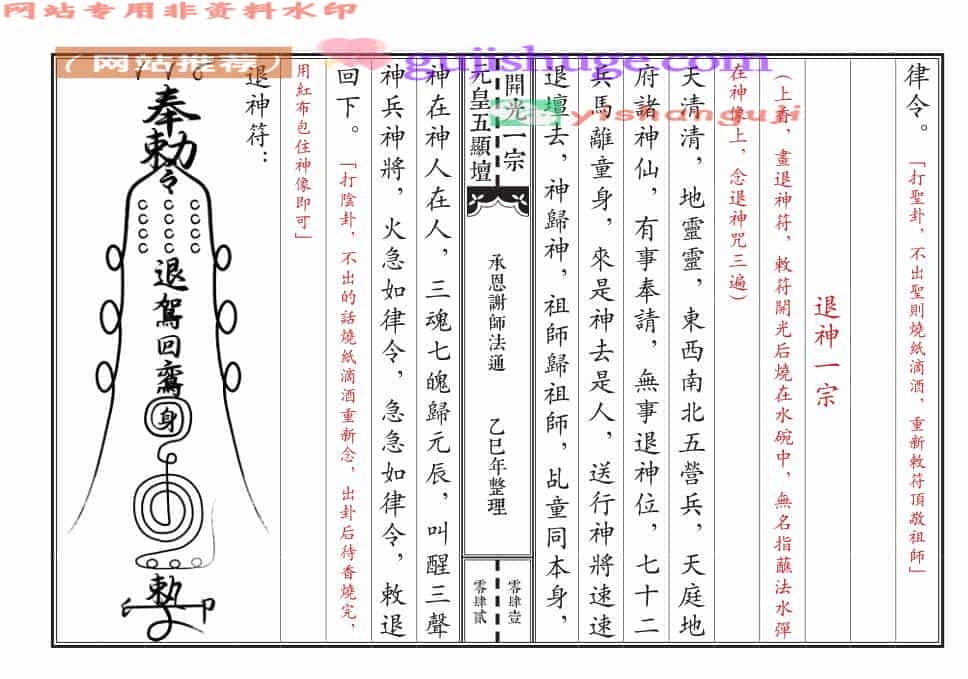 网站专用非资料水印
（网站推荐）
gujishuge.com
yishanguji
律令。「打聖卦，不出聖則燒紙滴酒，重新敕符頂敬祖師」
退神一宗
（上香，畫退神符，敕符開光后燒在水碗中，無名指蘸法水彈
在神像上，念退神咒三遍）
天清清，地靈靈，東西南北五營兵，天庭地
府諸神仙，有事奉請，無事退神位，七十二
兵馬離童身，來是神去是人，送行神將速速
退壇去，神歸神，祖師歸祖師，乩童同本身，
開光一宗
元皇五顯壇
承恩謝師法通
乙巳年整理
零肆壹
零肆貳
神在神人在人，三魂七魄歸元辰，叫醒三聲
神兵神將，火急如律令，急急如律令，敕退
回下。「打陰卦，不出的話燒紙滴酒重新念，出卦后待香燒完，
用紅布包住神像即可」
退神符：
奉勅令
退駕回鸞
身
勅